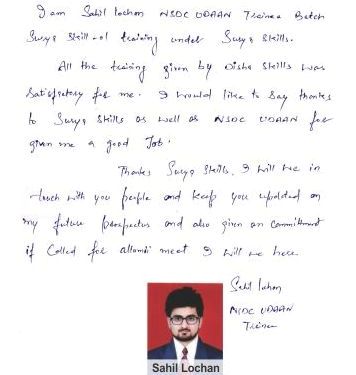 I am Sahil Lochan NSDC UDAAN Trainee Batch
Surya Skill-01 training under Surya Skills.
All the training given by Disha Skills was
Satisfactory for me. I would like to Say thanks
to Surya Skills as well as NSDC UDAAN for
given me a good Job.
Thanks Surya Skills. I will be in
touch with you people and keep you updated on
my future and also given an Commitment
if Called for meet I will be here
Sahil Lochan
NSDC UDAAN
Trainee
Sahil Lochan